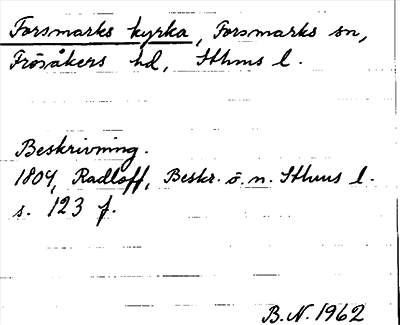 Forsmarks kyrka, Forsmarks sn,
Frösåkers hd, Sthms l.
Beskrivning.
1804, Radloff, Beskr. ö. n. Sthms l.
s. 123 f.
B.N. 1962